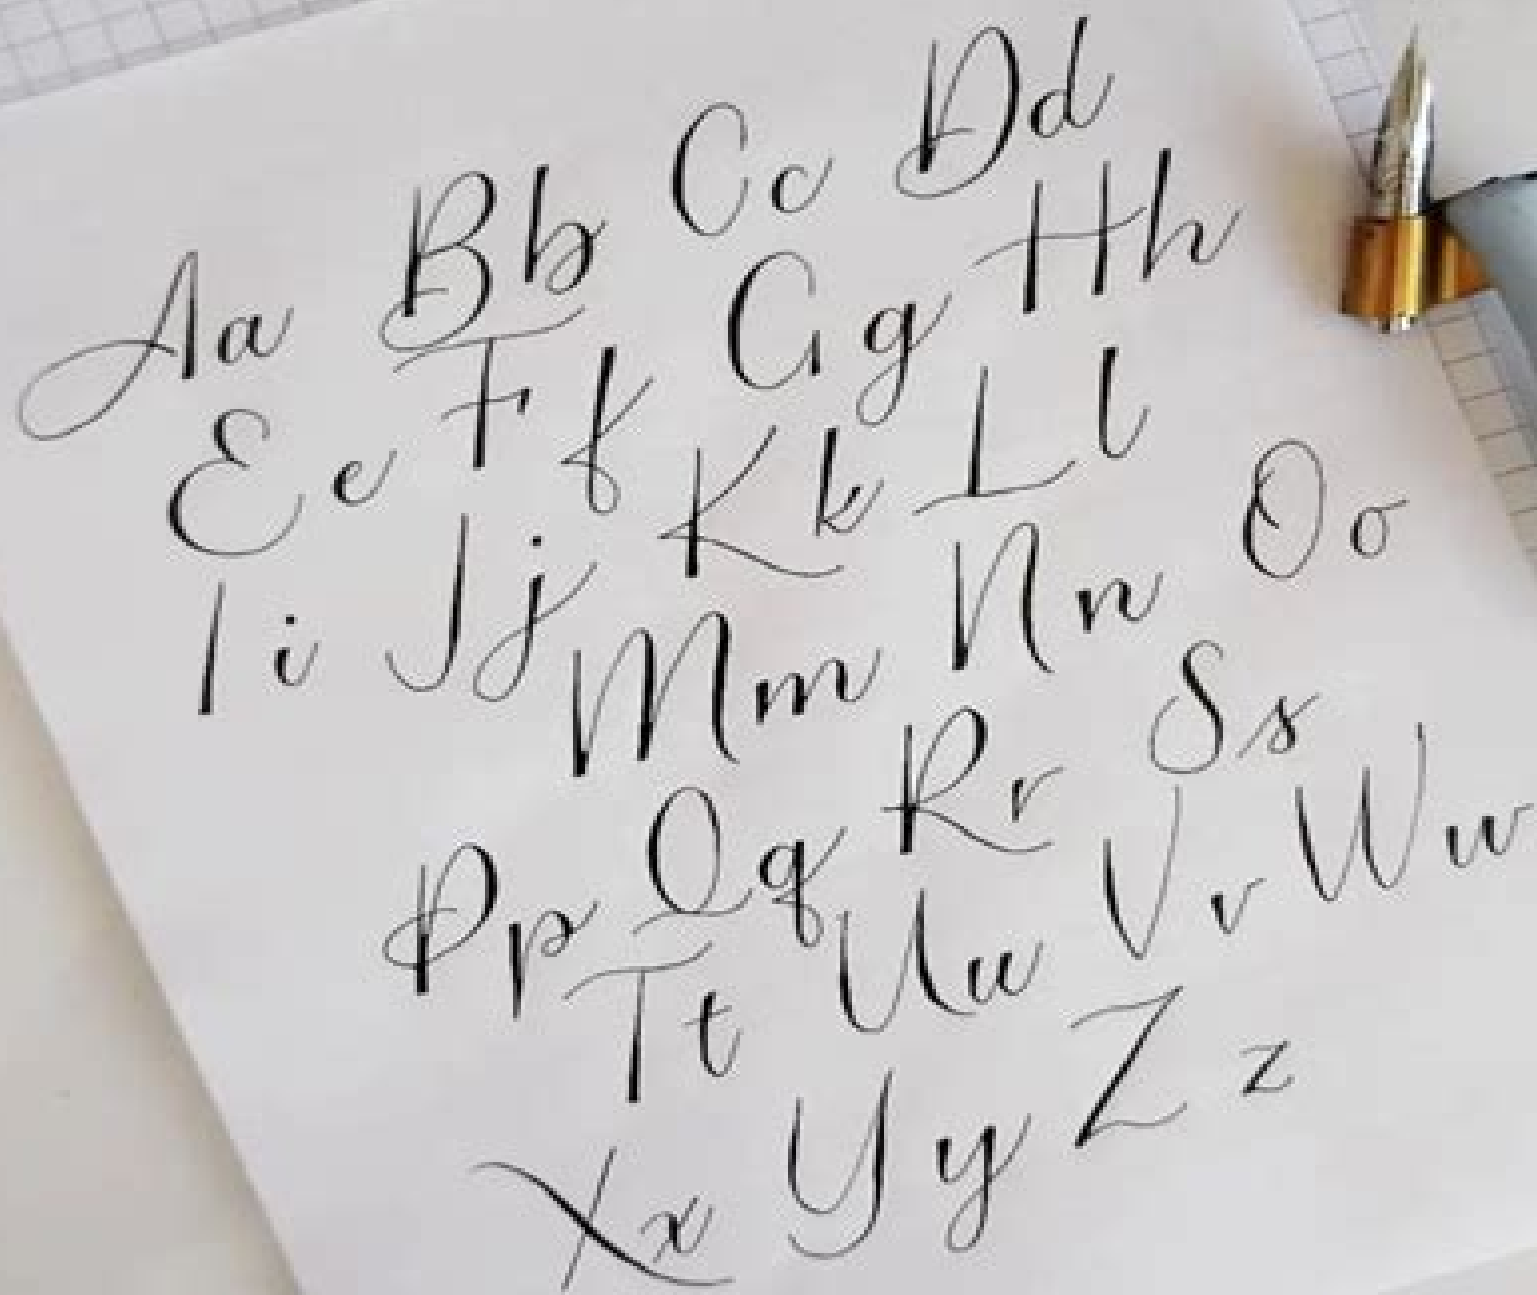 Aa Bb Cc Dd
Ee Ff Gg Hh
Ii Jj Kk Ll
Mm Nn Oo
Pp Qq Rr Ss
Tt Uu Vv Ww
Xx Yy Zz